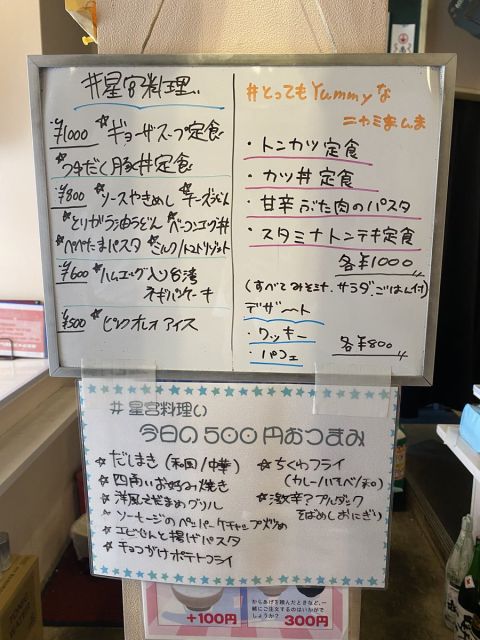 #星宮料理い
¥1000 ☆ギョーザスープ定食
☆つゆだく豚丼定食
¥800 ☆ソースやきめし ☆チーズうどん
☆とりがら油うどん ☆ベーコンエッグ丼
☆ペペたまパスタ ☆ミルク/トマトリゾット
¥600 ☆ハムエッグ入り台湾
ネギパンケーキ
¥500 ☆ピンクオレオアイス
#とってもYummyな
ニャミまんま
・トンカツ定食
・カツ丼定食
・甘辛ぶた肉のパスタ
・スタミナトンテキ定食
各¥1000
(すべてみそ汁、サラダ、ごはん付)
デザート
・ワッキー
・パフェ
各¥800
#星宮料理い
今日の500円おつまみ
☆だしまき(和風/中華)
☆四角いお好み焼き
☆洋風そらまめグリル
☆ソーセージのペッパーケチャップ炒め
☆エビせんと揚げパスタ
☆チョコがけポテトフライ
☆ちくわフライ
(カレー/いそべ/和)
おにぎり
+100円
からあげを頼んだときなど、一
緒にご注文するのはいかがで
しょうか?
300円